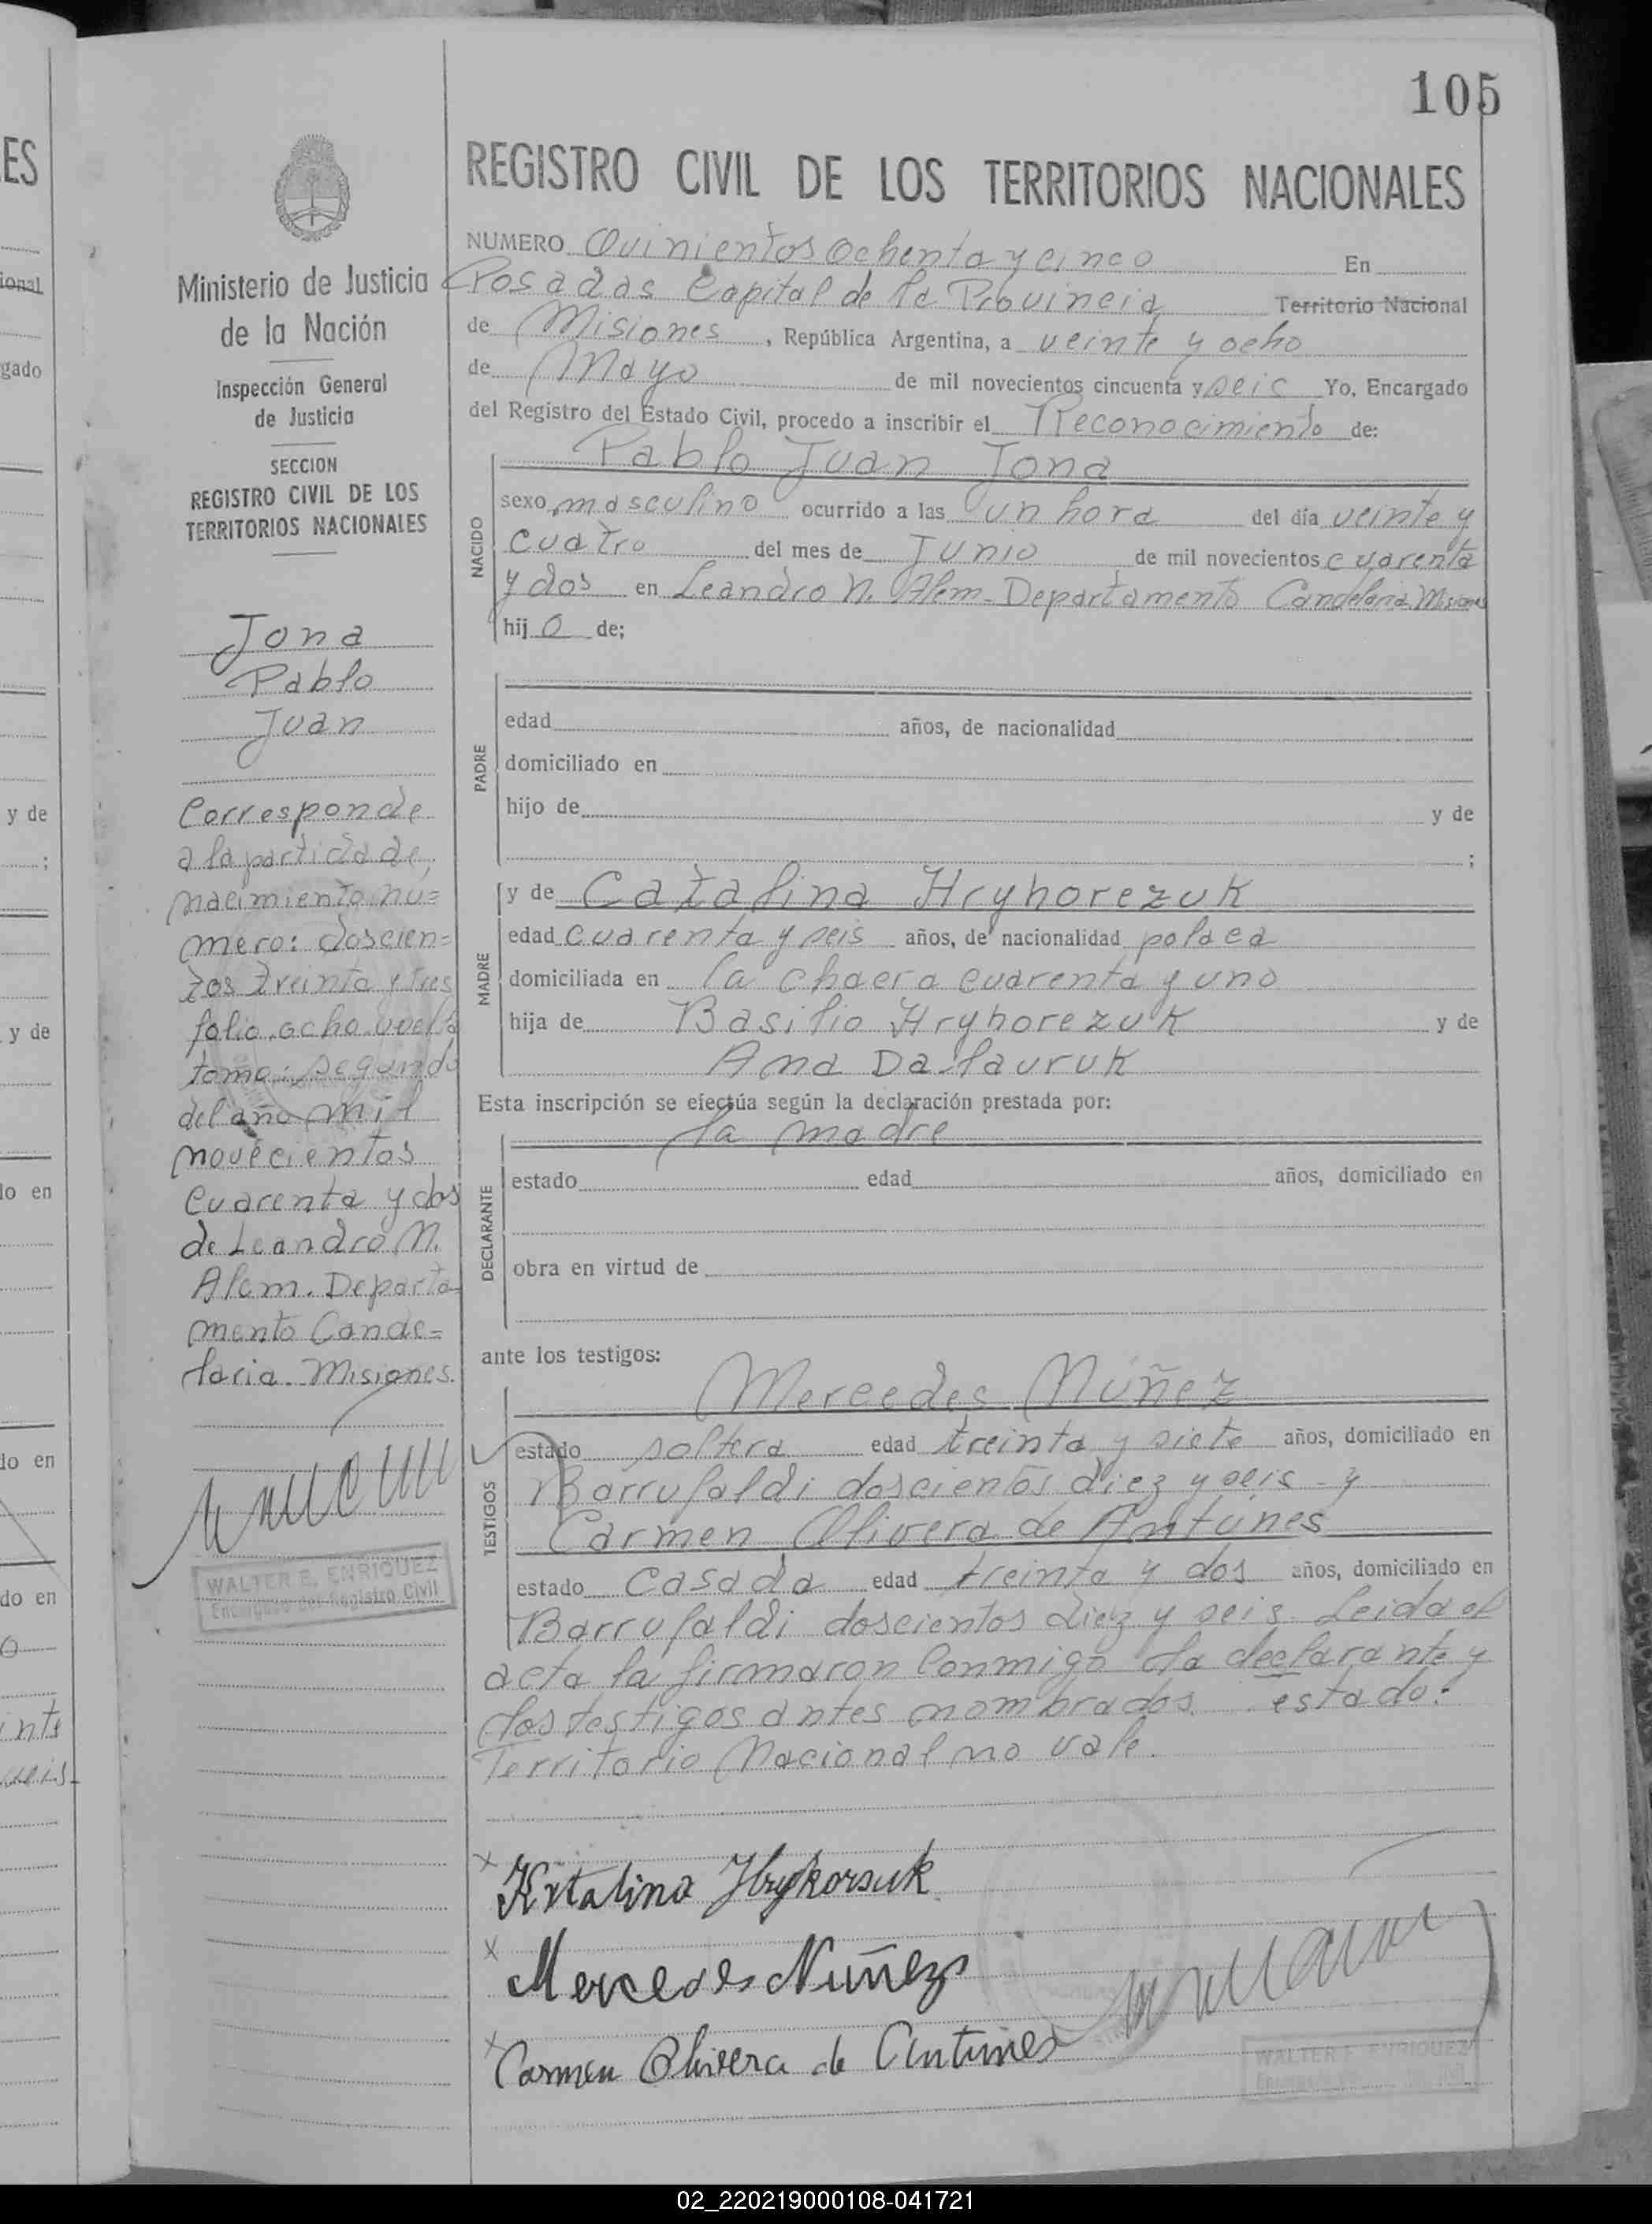 105
REGISTRO CIVIL DE LOS TERRITORIOS NACIONALES
NUMERO Quinientos ochenta y cinco En
Posadas Capital de la Provincia Territorio Nacional
de Misiones, República Argentina, a veinte y ocho
de Mayo de mil novecientos cincuenta y seis Yo, Encargado
del Registro del Estado Civil, procedo a inscribir el Reconocimiento de:
NACIDO
Pablo Juan Jona
sexo masculino ocurrido a las un hora del día veinte y
cuatro del mes de Junio de mil novecientos cuarenta
y dos en Leandro N. Alem - Departamento Candelaria Misiones
hijo de;
PADRE
edad años, de nacionalidad
domiciliado en
hijo de y de
;
MADRE
y de Catalina Hryhorezuk
edad cuarenta y seis años, de nacionalidad polaca
domiciliada en la chacra cuarenta y uno
hija de Basilio Hryhorezuk y de
Ana
Esta inscripción se efectúa según la declaración prestada por:
DECLARANTE
la madre
estado edad años, domiciliado en
obra en virtud de
ante los testigos:
TESTIGOS
Mercedes Núñez
estado soltera edad treinta y siete años, domiciliado en
Barrufaldi doscientos diez y seis - y
Carmen Olivera de Antúnes
estado casada edad treinta y dos años, domiciliado en
Barrufaldi doscientos diez y seis Leida el
acta la firmaron conmigo la declarante y
los testigos antes nombrados. estado:
Territorio Nacional no vale.
x Katalina
x Mercedes Nuñez
x Carmen Olivera de Antunes
WALTER E. ENRIQUEZ
Ministerio de Justicia
de la Nación
Inspección General
de Justicia
SECCION
REGISTRO CIVIL DE LOS
TERRITORIOS NACIONALES
Jona
Pablo
Juan
Corresponde
a la partida de
nacimiento nú=
mero: doscien=
tos treinta y tres
folio ocho vuelta
tomo: segundo
del año mil
novecientos
cuarenta y dos
de Leandro N.
Alem. Departa-
mento Cande=
laria. Misiones.
WALTER E. ENRIQUEZ
Encargado del Registro Civil
ES
ional
gado
y de
;
y de
do en
do en
do en
o
inte
seis.
02_220219000108-041721